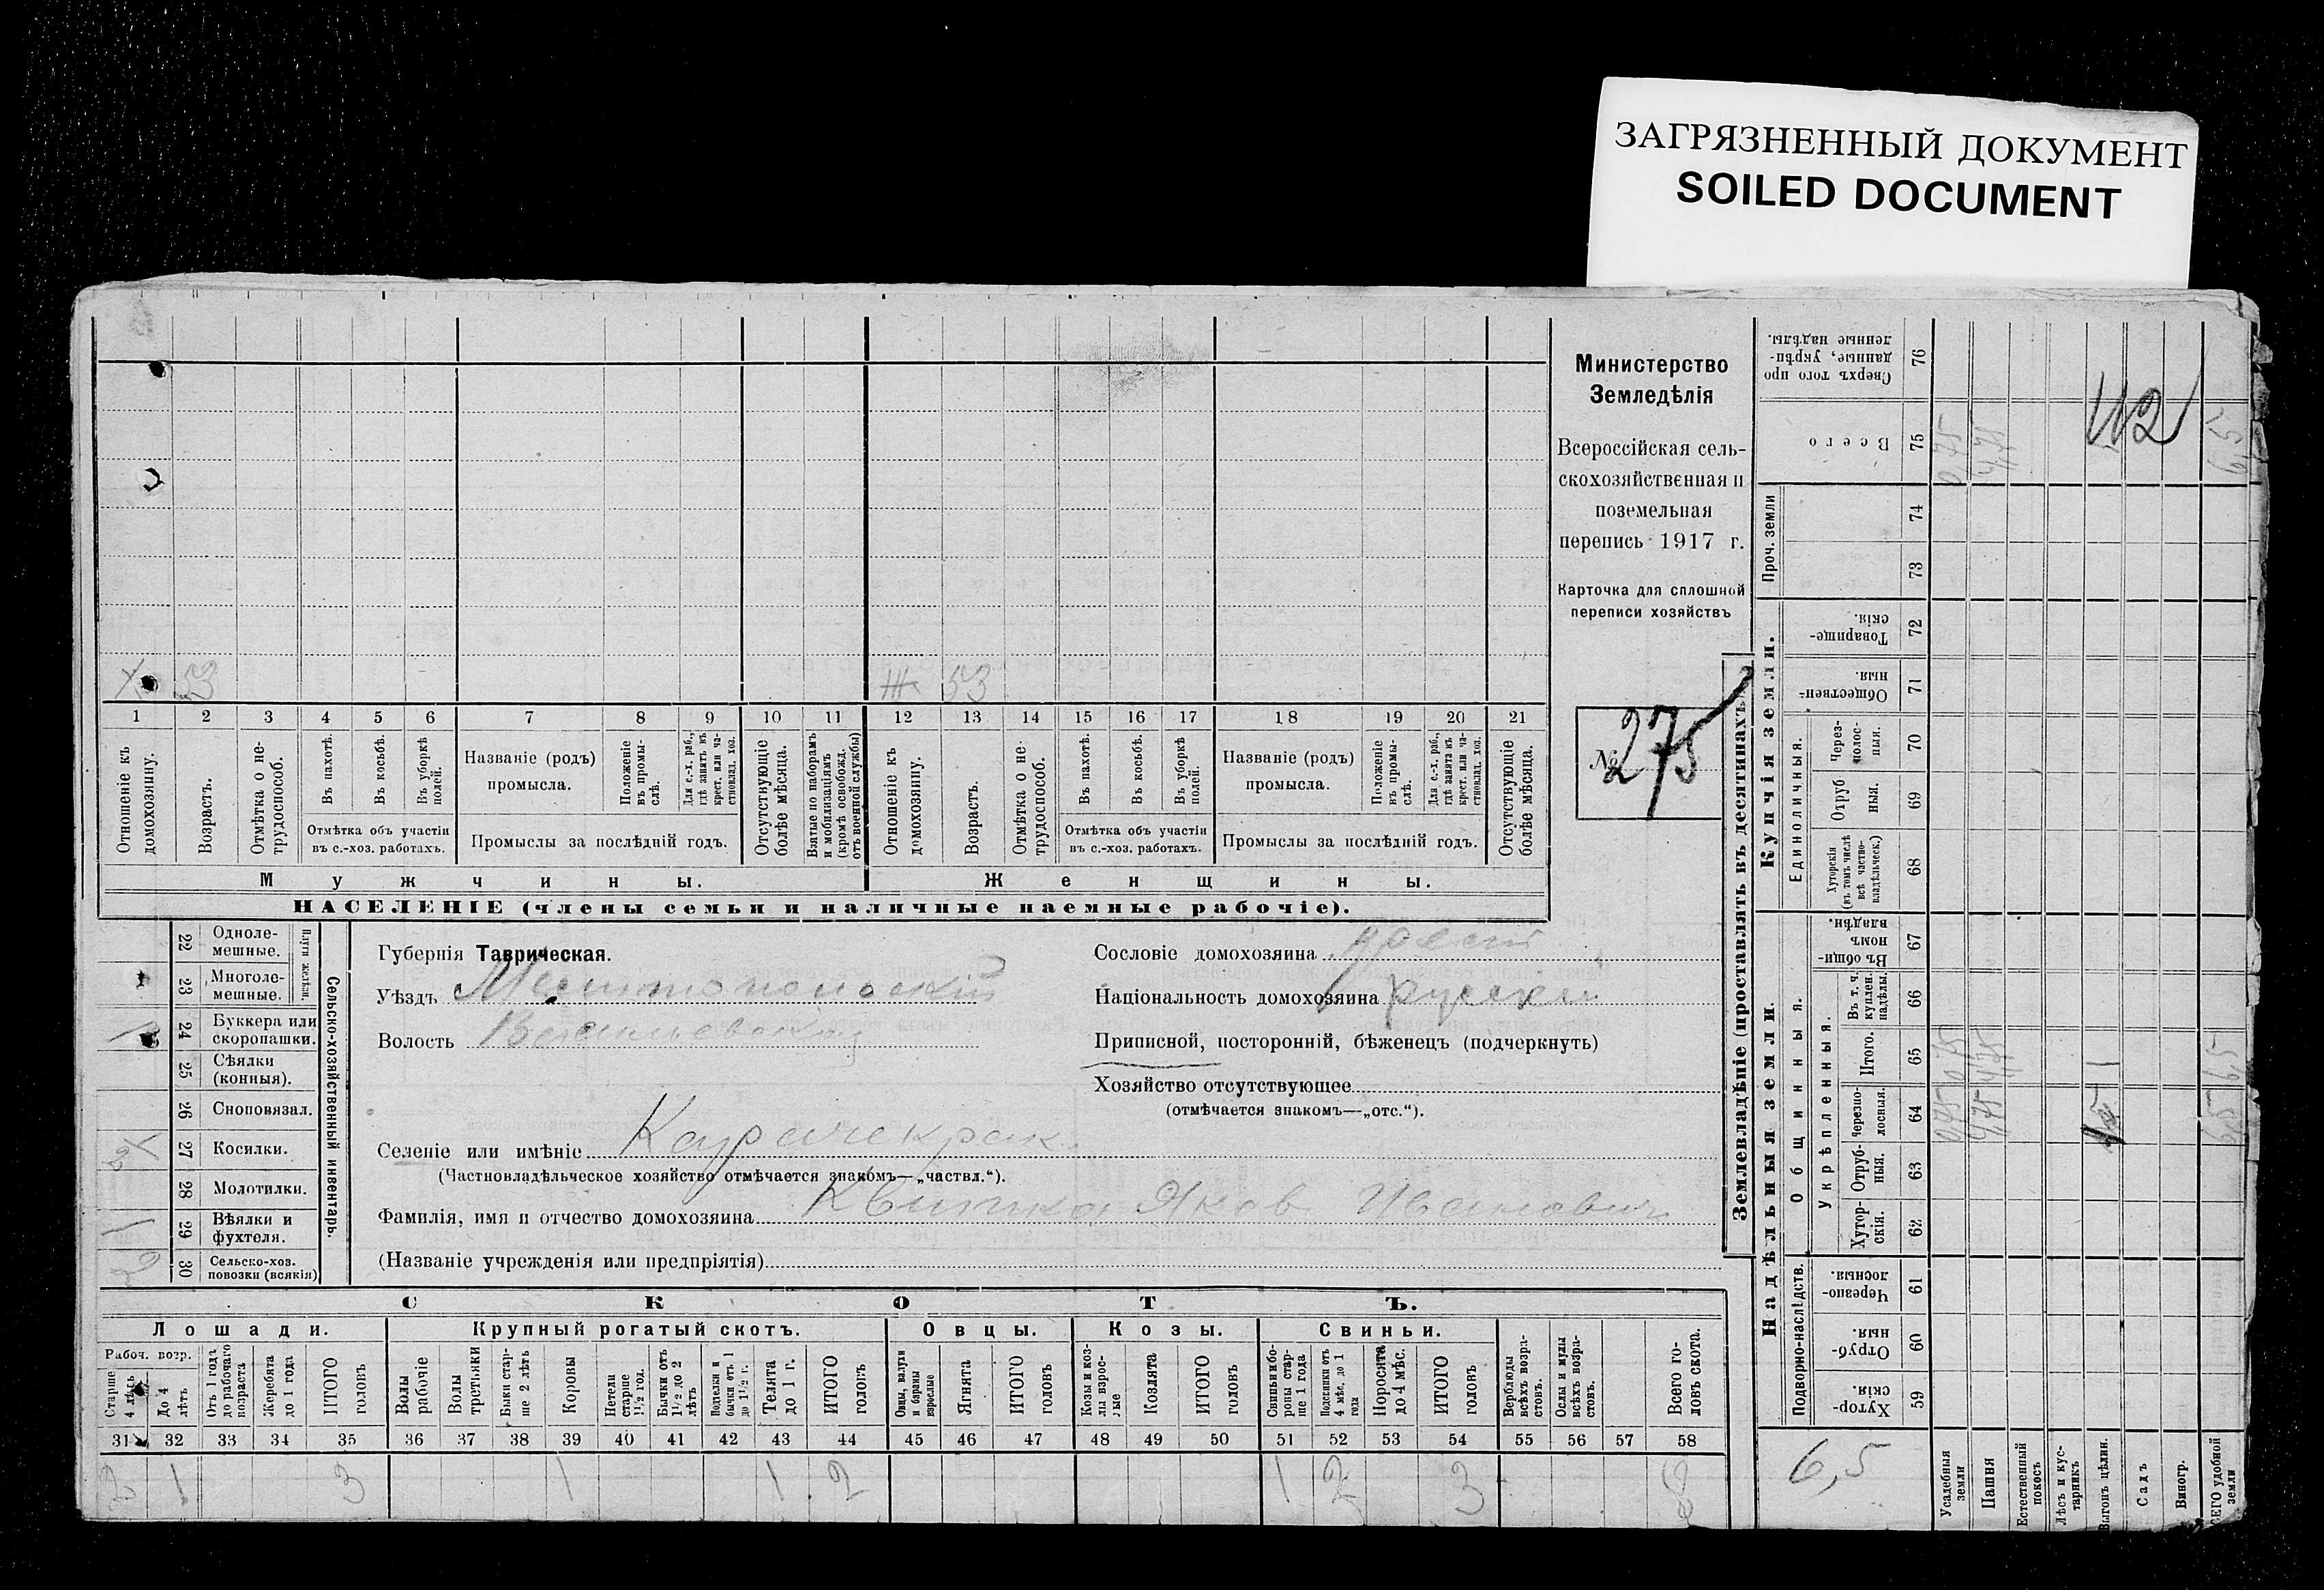 ЗАГРЯЗНЕННЫЙ ДОКУМЕНТ
SOILED DOCUMENT
Министерство
Земледѣлія
Всероссійская сель-
скохозяйственная и
поземельная
перепись 1917 г.
Карточка для сплошной
переписи хозяйствъ
№ 275
53
Ж 53
1 2 3 4 5 6 7 8 9 10 11 12 13 14 15 16 17 18 19 20 21
Отношеніе къ домохозяину.
Возрастъ.
Отмѣтка о не-трудоспособ.
Въ пахотѣ.
Въ косьбѣ.
Въ уборкѣ полей.
Отмѣтка объ участіи
въ с.-хоз. работахъ.
Названіе (родъ)
промысла.
Положеніе въ промы-слѣ.
Для с.-х. раб., гдѣ занятъ въ крест. или ча-стновлад. хоз.
Промыслы за послѣдній годъ.
Отсутствующіе болѣе мѣсяца.
Взятые по наборамъ и мобилизаціямъ (кромѣ освобожд. отъ военной службы)
Отношеніе къ домохозяину.
Возрастъ.
Отмѣтка о не-трудоспособ.
Въ пахотѣ.
Въ косьбѣ.
Въ уборкѣ полей.
Отмѣтка объ участіи
въ с.-хоз. работахъ.
Названіе (родъ)
промысла.
Положеніе въ промы-слѣ.
Для с.-х. раб., гдѣ занята въ крест. или ча-стновлад. хоз.
Промыслы за послѣдній годъ.
Отсутствующіе болѣе мѣсяца.
Мужчины.
Женщины.
НАСЕЛЕНІЕ (члены семьи и наличные наемные рабочіе).
22 Одноле-мешные.
23 Многоле-мешные.
Плуги желѣзн.
24 Буккера или скоропашки.
25 Сѣялки (конныя).
26 Сноповязал.
27 Косилки.
28 Молотилки.
29 Вѣялки и фухтеля.
30 Сельско-хоз. повозки (всякія)
Сельско-хозяйственный инвентарь.
Губернія Таврическая.
Уѣздъ Мелитопольскій
Волость Васильевская
Селеніе или имѣніе Карачекрак
(Частновладѣльческое хозяйство отмѣчается знакомъ—„частвл.“).
Фамилія, имя и отчество домохозяина Квитка Яков Иванович
(Названіе учрежденія или предпріятія)
Сословіе домохозяина крест
Національность домохозяина русскій
Приписной, посторонній, бѣженецъ (подчеркнуть)
Хозяйство отсутствующее
(отмѣчается знакомъ—„отс.“).
СКОТЪ.
Лошади.
Крупный рогатый скотъ.
Овцы.
Козы.
Свиньи.
Рабоч. возр.
Старше 4 лѣтъ
До 4 лѣтъ
Отъ 1 года до рабочаго возраста
Жеребята до 1 года
ИТОГО головъ
Волы рабочіе
Волы третьяки
Быки стар-ше 2 лѣтъ
Коровы
Нетели старше 1½ год.
Бычки отъ 1½ до 2 лѣтъ
Подтелки и бычки отъ 1 до 1½ г.
Телята до 1 г.
ИТОГО головъ
Овцы, валухи и бараны взрослые
Ягнята
ИТОГО головъ
Козы и коз-лы взрос-лые
Козлята
ИТОГО головъ
Свиньи и бо-ровы стар-ше 1 года
Подсвинки отъ 4 мѣс. до 1 года
Поросята до 4 мѣс.
ИТОГО головъ
Верблюды всѣхъ возра-стовъ.
Ослы и мулы всѣхъ возра-стовъ.
Всего го-ловъ скота.
31 32 33 34 35 36 37 38 39 40 41 42 43 44 45 46 47 48 49 50 51 52 53 54 55 56 57 58
2 1 3 1 1 2 1 2 3 8
Землевладѣніе (проставлять въ десятинахъ).
Надѣльныя земли.
Купчія земли.
Проч. земли
Подворно-наслѣдств.
Общинныя.
Укрѣпленныя.
Единоличныя.
59 Хутор-скія.
60 Отруб-ныя.
61 Черезпо-лосныя.
62 Хутор-скія.
63 Отруб-ныя.
64 Черезпо-лосныя.
65 Итого.
66 Въ т. ч. куплен. надѣлы.
67 Въ общи-номъ владѣн.
68 Хуторскія (въ томъ числѣ всѣ частно-владѣльческ.)
69 Отруб ныя.
70 Черезполос-ныя.
71 Обществен-ныя.
72 Товарище-скія.
73
74
75 Всего
76 Сверхъ того про данные, укрѣп-ленные надѣлы.
6,5
Усадебныя земли
0,75 0,75 0,75
Пашня
4,75 4,75 4,75
Естественный покосъ
Лѣсъ и кус-тарникъ
Выгонъ цѣлин.
1
Садъ
Виногр.
ВСЕГО удобной земли
6,5 6,5 6,5
112